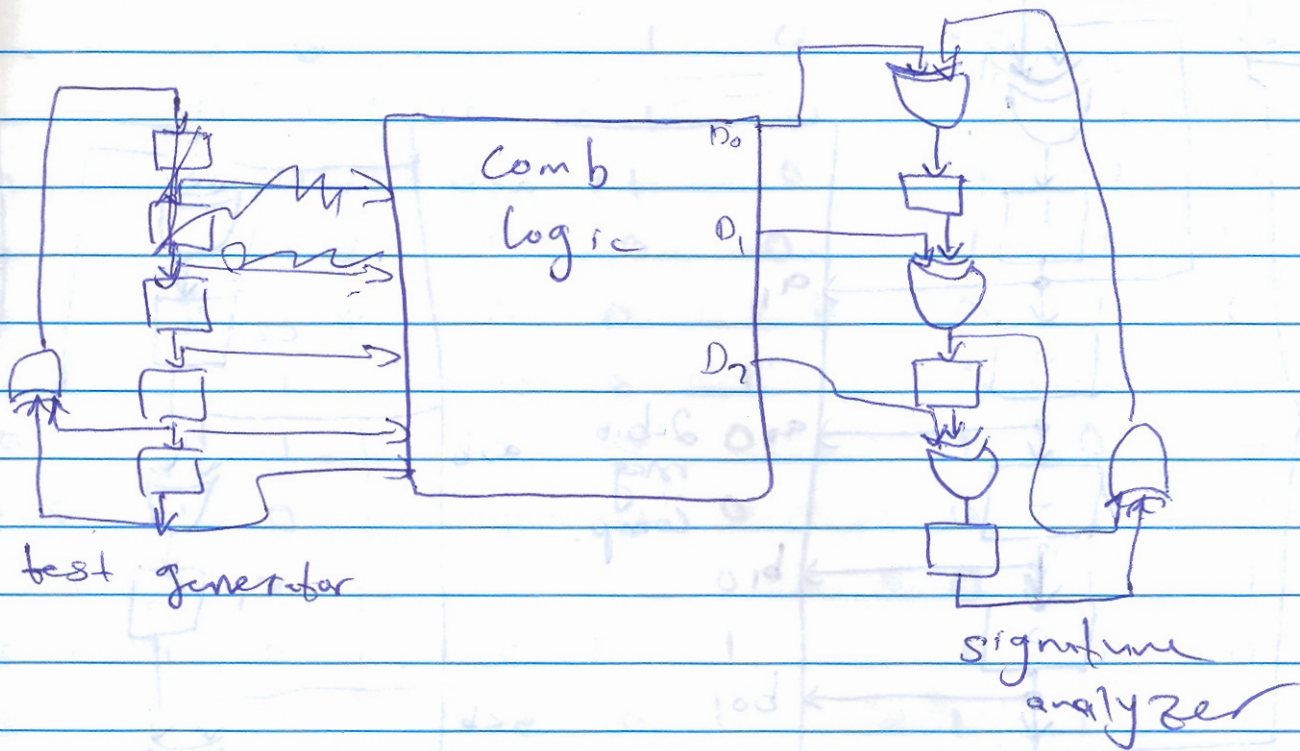 Comb
logic
D₀
D₁
D₂
test generator
signature
analyzer